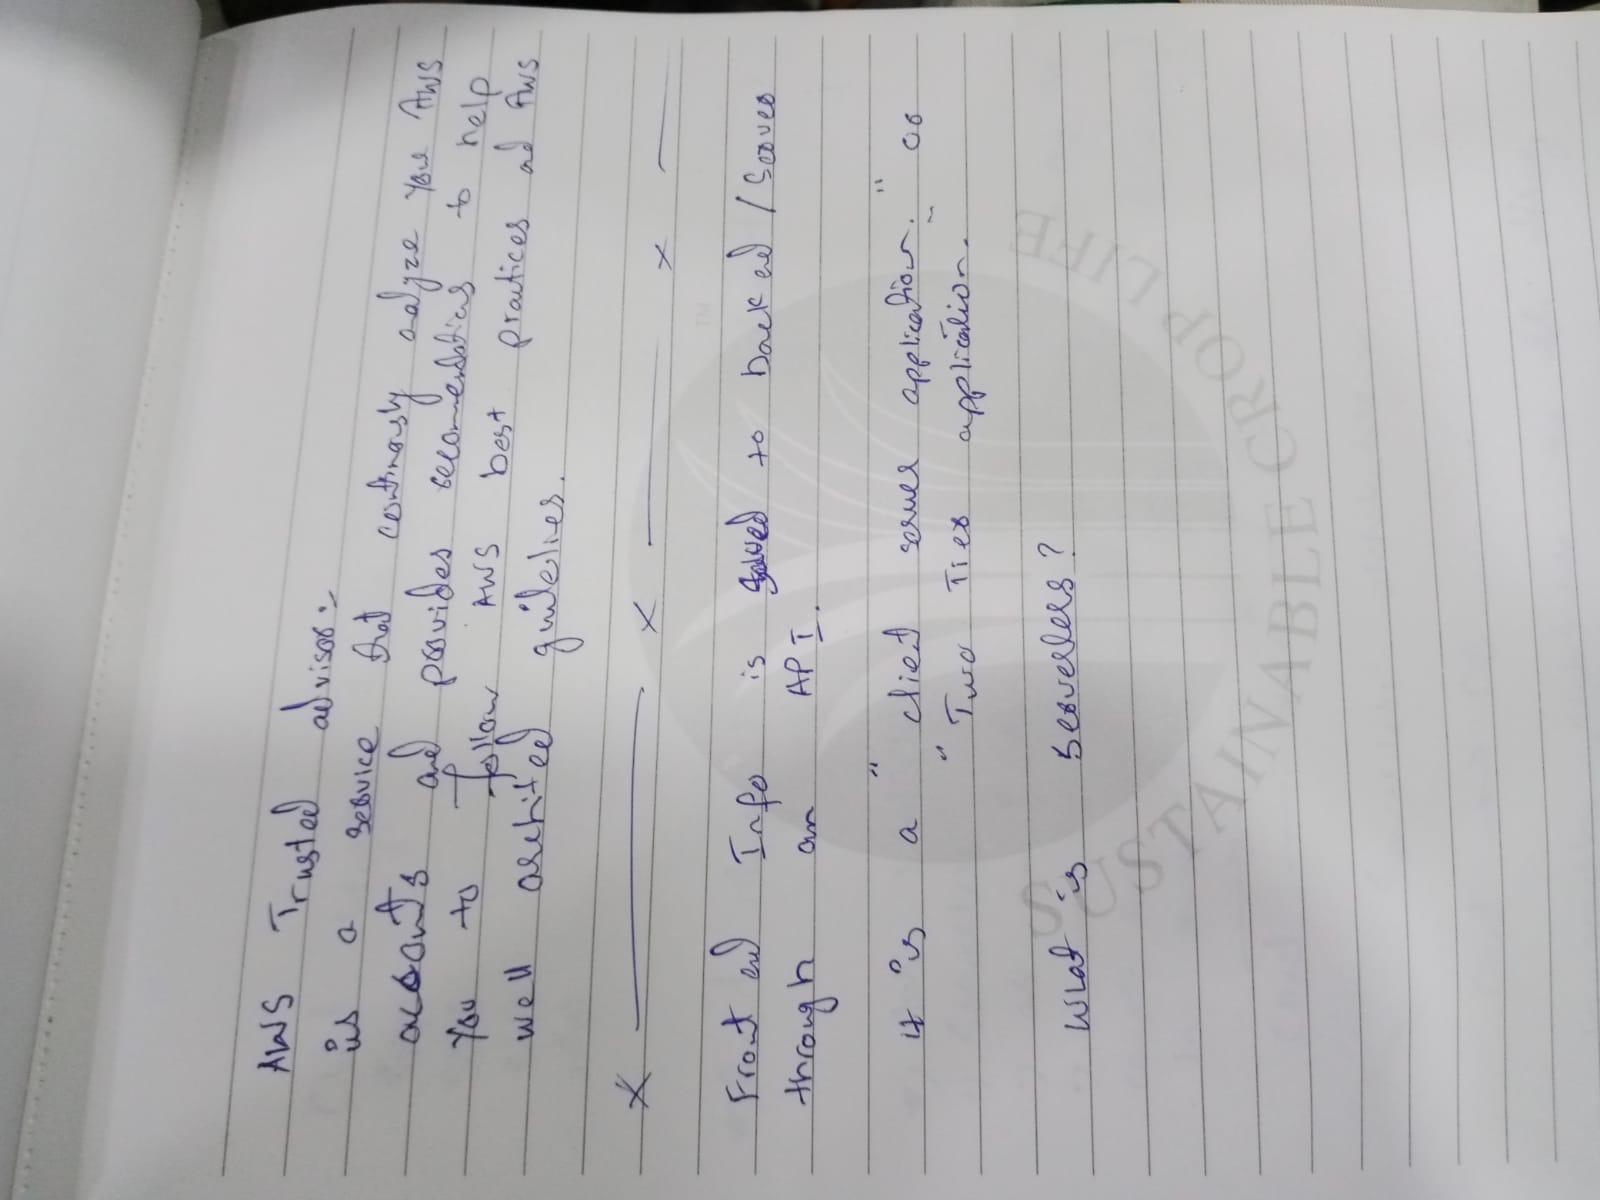 AWS Trusted advisor:-
is a service that continously analyze your AWS
accounts and provides recommendations to help
you to follow AWS best practices and AWS
well architted guidelines.
X ——— X ——— X ———
Front end Info is saved to backend / Server
through an API.
it is a "client server application." or
"Two Tier application."
What is serverless?
SUSTAINABLE CROP LIFE
TM